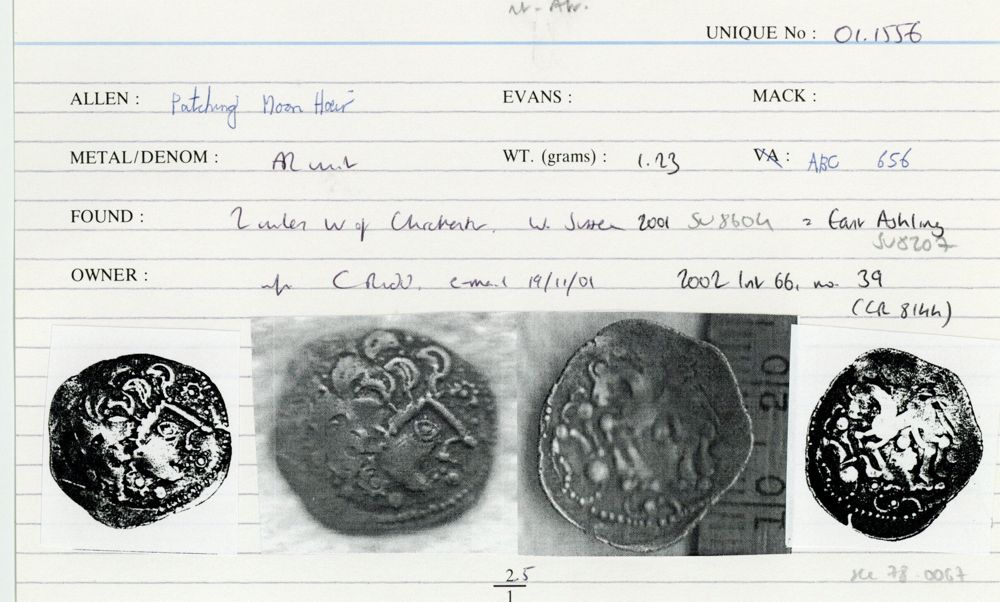 UNIQUE No : 01.1556
ALLEN : Patching Moon Hair EVANS : MACK :
METAL/DENOM : AR unit WT. (grams) : 1.23 VA : ABC 656
FOUND : 2 miles W of Chichester, W. Sussex 2001 SU8604 = East Ashling
SU8207
OWNER : CRudd, e-mail 19/11/01 2002 List 66, no. 39
(CR 8144)
10 20
2.5
1
see 78.0067